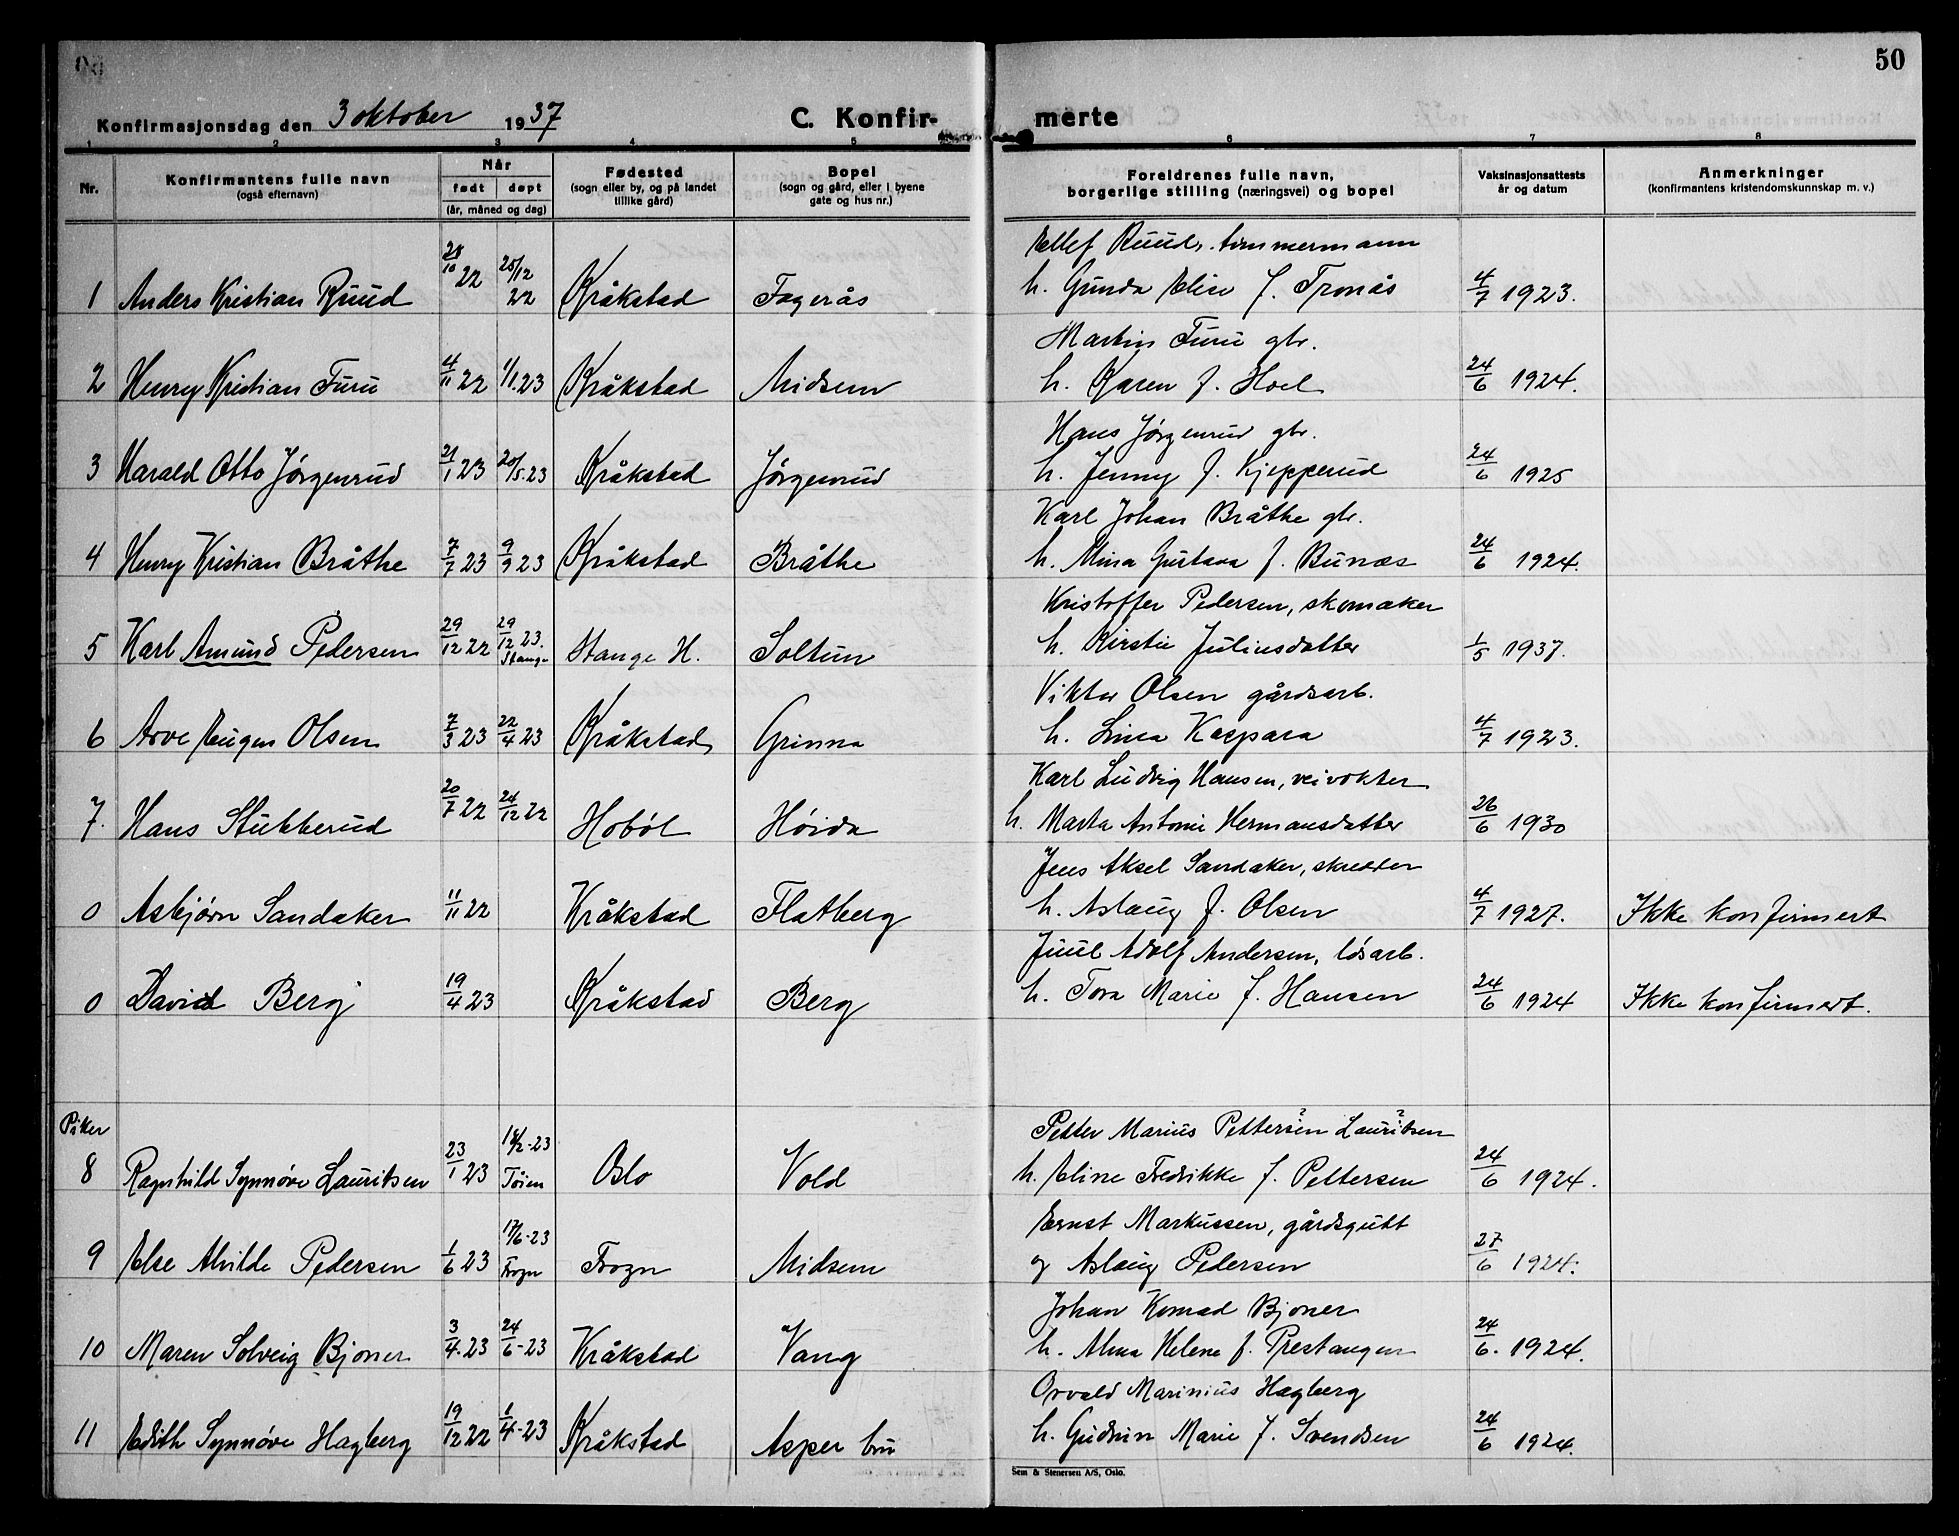 50
Konfirmasjonsdag den 3 oktober 1937 C. Konfir- merte
1 2 3 4 5 6 7 8
Nr. Konfirmantens fulle navn (også efternavn) Når født døpt (år, måned og dag) Fødested (sogn eller by, og på landet tillike gård) Bopel (sogn og gård, eller i byene gate og hus nr.) Foreldrenes fulle navn, borgerlige stilling (næringsvei) og bopel Vaksinasjonsattests år og datum Anmerkninger (konfirmantens kristendomskunnskap m. v.)
Ellef Ruud, tømmermann
1 Anders Kristian Ruud 22 25/12 22 Kråkstad Fagerås h. Gunda Elise f. Tronås 4/7 1923.
Martin Furu gbr.
2 Henry Kristian Furu 4/11 22 1/1.23 Kråkstad Midsem h. Karen f. Hoel 24/6 1924.
Hans Jørgenrud gbr.
3 Harald Otto Jørgenrud 21/1 23 20/5.23 Kråkstad Jørgenrud h. Jenny f. Kjepperud 24/6 1925
Karl Johan Bråthe gbr.
4 Henry Kristian Bråthe 7/7 23 9/9 23 Kråkstad Bråthe h. Mina Gustava f. Bunæs 24/6 1924.
Kristoffer Pedersen, skomaker
5 Karl Amund Pedersen 29/12 22 29/12 23. Stange Stange H. Soltun h. Kirstie Juliusdatter 1/5 1937.
Viktor Olsen gårdsarb.
6 Arve Eugen Olsen 7/3 23 22/4 23 Kråkstad Grinna h. Lina Kaspara 4/7 1923.
Karl Ludvig Hansen, veivokter
7. Hans Stubberud 20/7 22 24/12 22 Hobøl Høida h. Marta Antonie Hermansdatter 26/6 1930
Jens Aksel Sandaker, skredder
0 Asbjørn Sandaker 11/11 22 Kråkstad Flatberg h. Aslaug f. Olsen 4/7 1927. Ikke konfirmert
Juul Adolf Andersen, løsarb.
0 David Berg 19/4 23 Kråkstad Berg h. Tora Marie f. Hansen 24/6 1924 Ikke konfirmert.
Piker
Petter Marius Pettersen? Lauritsen?
8 Ragnhild Synnøve Lauritsen 23/1 23 Tøien Oslo Vold h. Eline Fredrikke f. Pettersen 24/6 1924.
Ernst Markussen, gårdsgutt
9 Else Alvilde Pedersen 1/6 23 17/6-23 Frogn Frogn Midsem og Aslaug Pedersen 27/6 1924.
Johan Konrad Bjoner
10 Maren Solveig Bjoner 3/4.23 24/6-23 Kråkstad Vang h. Alma Helene f. Prestangen 24/6. 1924.
Orvald Marinius Hagberg
11 Edith Synnøve Hagberg 19/12 22 1/4-23 Kråkstad Asper bru h. Gudrun Marie f. Svendsen 24/6 1924.
Sem & Stenersen A/S, Oslo.